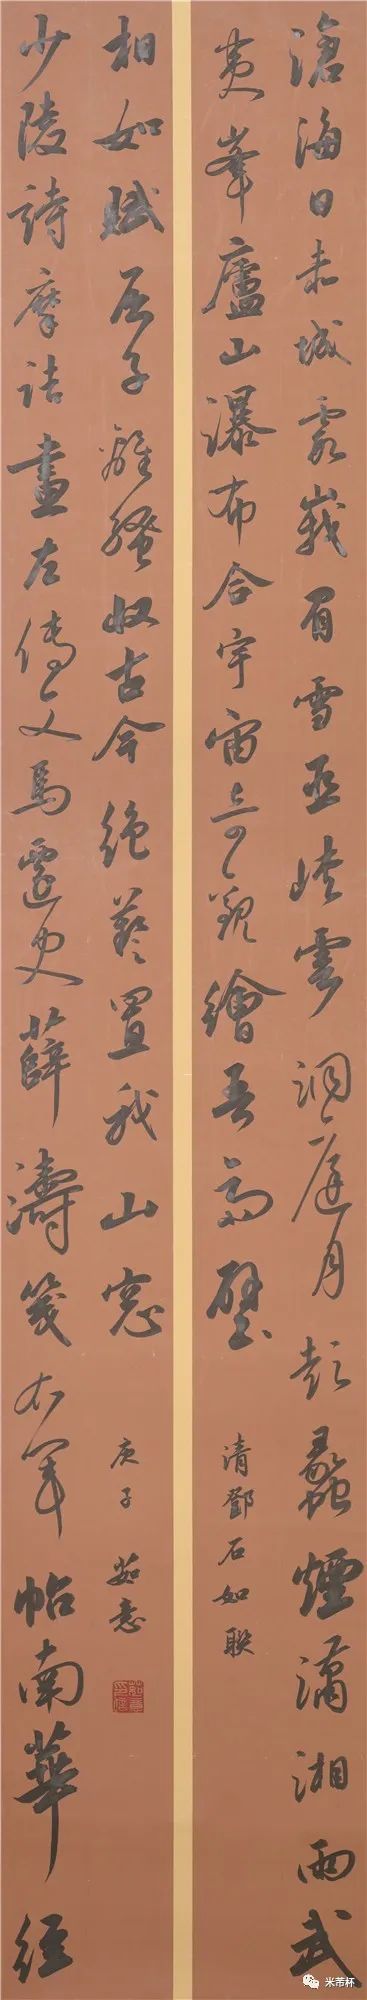 滄海日赤城霞峩眉雪巫峽雲洞庭月彭蠡煙瀟湘雨武
夷峯廬山瀑布合宇宙奇觀繪吾齋壁
清鄧石如聯
少陵詩摩詰畫左傳文馬遷史薛濤箋右軍帖南華經
相如賦屈子離騷收古今絕藝置我山窓
庚子 茹意
米芾杯